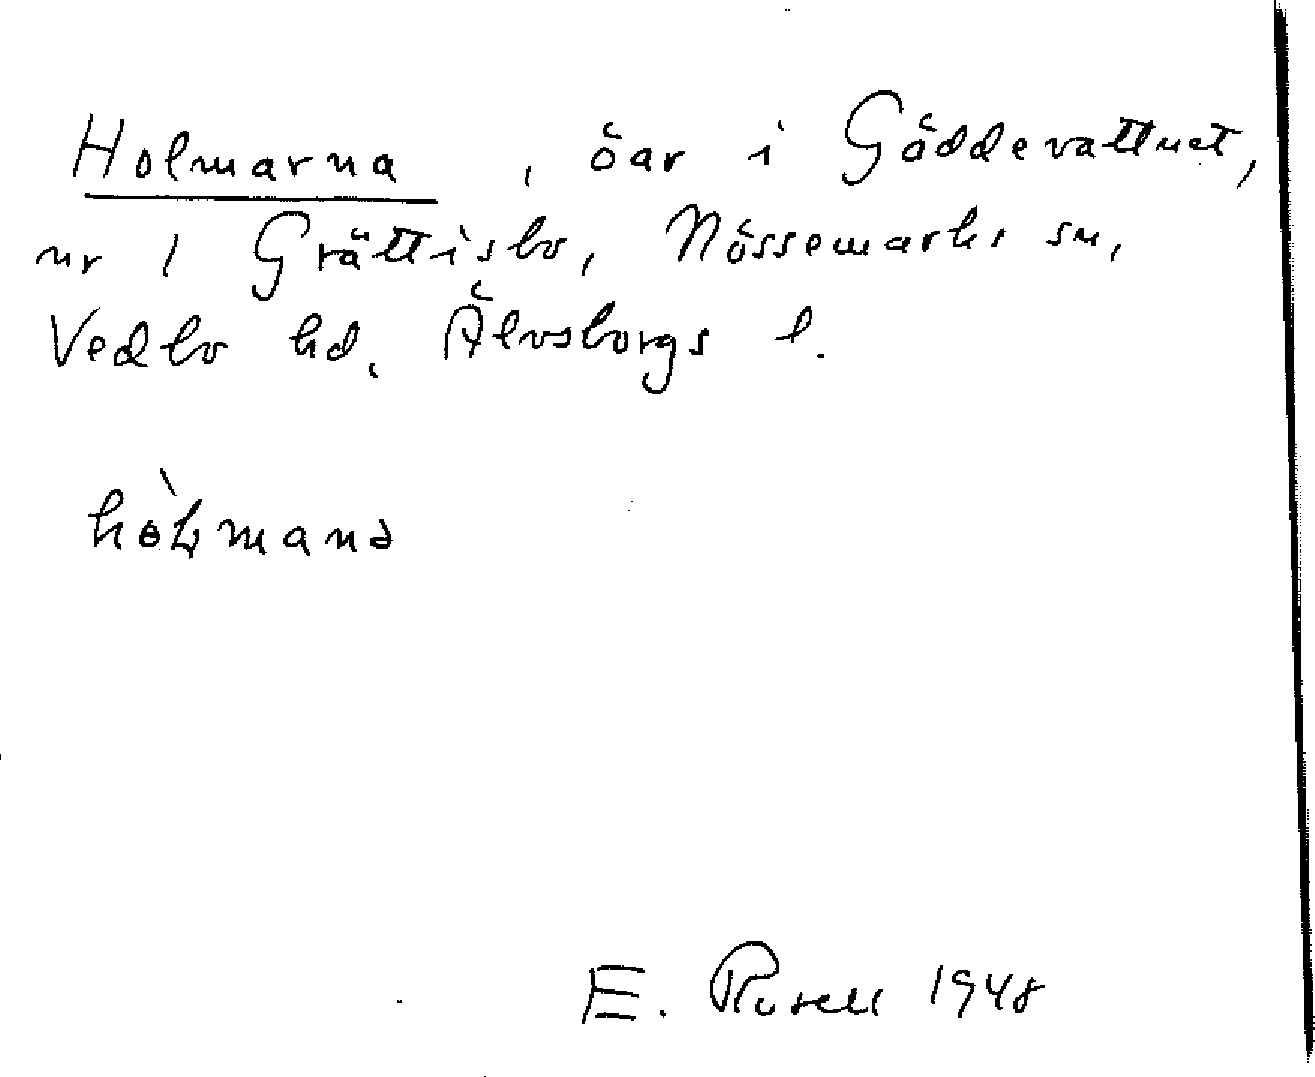 Holmarna, öar i Göddevattnet,
nr 1 Grättisbo, Nössemarks sn,
Vedbo hd, Älvsborgs l.
E. Rosell 1948